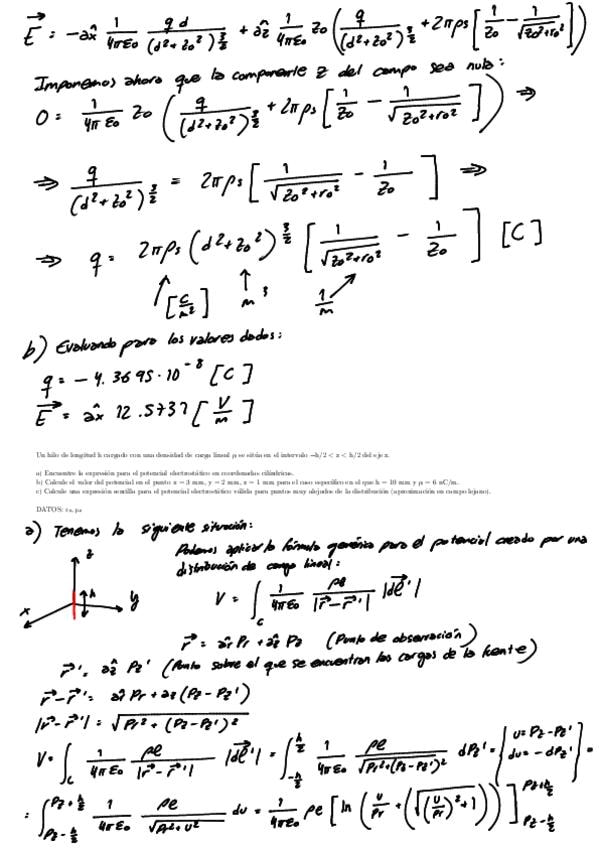 E⃗ = -âx 1/(4πε0) qd/(d²+z0²)^(3/2) + âz 1/(4πε0) z0 ( q/(d²+z0²)^(3/2) + 2πρs [ 1/z0 - 1/√(z0²+r0²) ] )
Imponemos ahora que la componente z del campo sea nula:
0 = 1/(4πε0) z0 ( q/(d²+z0²)^(3/2) + 2πρs [ 1/z0 - 1/√(z0²+r0²) ] ) ⇒
⇒ q/(d²+z0²)^(3/2) = 2πρs [ 1/√(z0²+r0²) - 1/z0 ] ⇒
⇒ q = 2πρs (d²+z0²)^(3/2) [ 1/√(z0²+r0²) - 1/z0 ] [C]
[C/m²] m³ 1/m
b) Evaluando para los valores dados:
q = -4.3695·10^-8 [C]
E⃗ = âx 12.5737 [V/m]
Un hilo de longitud h cargado con una densidad de carga lineal ρ se sitúa en el intervalo −h/2 < z < h/2 del eje z.
a) Encuentre la expresión para el potencial electrostático en coordenadas cilíndricas.
b) Calcule el valor del potencial en el punto x = 3 mm, y = 2 mm, z = 1 mm para el caso específico en el que h = 10 mm y ρ = 6 nC/m.
c) Calcule una expresión sencilla para el potencial electrostático válida para puntos muy alejados de la distribución (aproximación en campo lejano).
DATOS:
a) Tenemos la siguiente situación:
Podemos aplicar la fórmula genérica para el potencial creado por una
distribución de carga lineal:
z
h
x y
V = ∫c 1/(4πε0) ρe/|r⃗-r⃗'| |dℓ⃗'|
r⃗ = âr Pr + âz Pz (Punto de observación)
r⃗' = âz Pz' (Punto sobre el que se encuentran las cargas de la fuente)
r⃗-r⃗' = âr Pr + âz (Pz-Pz')
|r⃗-r⃗'| = √(Pr² + (Pz-Pz')²)
V = ∫c 1/(4πε0) ρe/|r⃗-r⃗'| |dℓ⃗'| = ∫_(-h/2)^(h/2) 1/(4πε0) ρe/√(Pr²+(Pz-Pz')²) dPz' = { u = Pz-Pz' du = -dPz' } =
= ∫_(Pz-h/2)^(Pz+h/2) 1/(4πε0) ρe/√(Pr²+u²) du = 1/(4πε0) ρe [ ln( u/Pr + (√((u/Pr)²+1)) ) ]_(Pz-h/2)^(Pz+h/2)